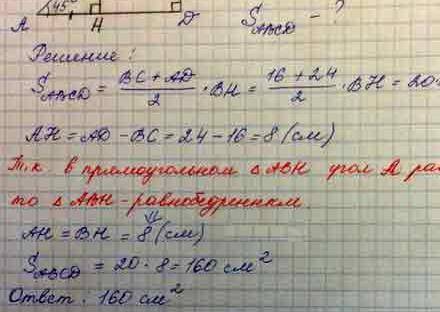 A 45° H D S_ABCD - ?
Решение:
S_ABCD = BC + AD / 2 · BH = 16 + 24 / 2 · BH = 20
AH = AD - BC = 24 - 16 = 8 (см)
Т.к. в прямоугольном △ ABH угол A ра
то △ ABH - равнобедренным.
AH = BH = 8 (см)
S_ABCD = 20 · 8 = 160 см²
Ответ: 160 см²